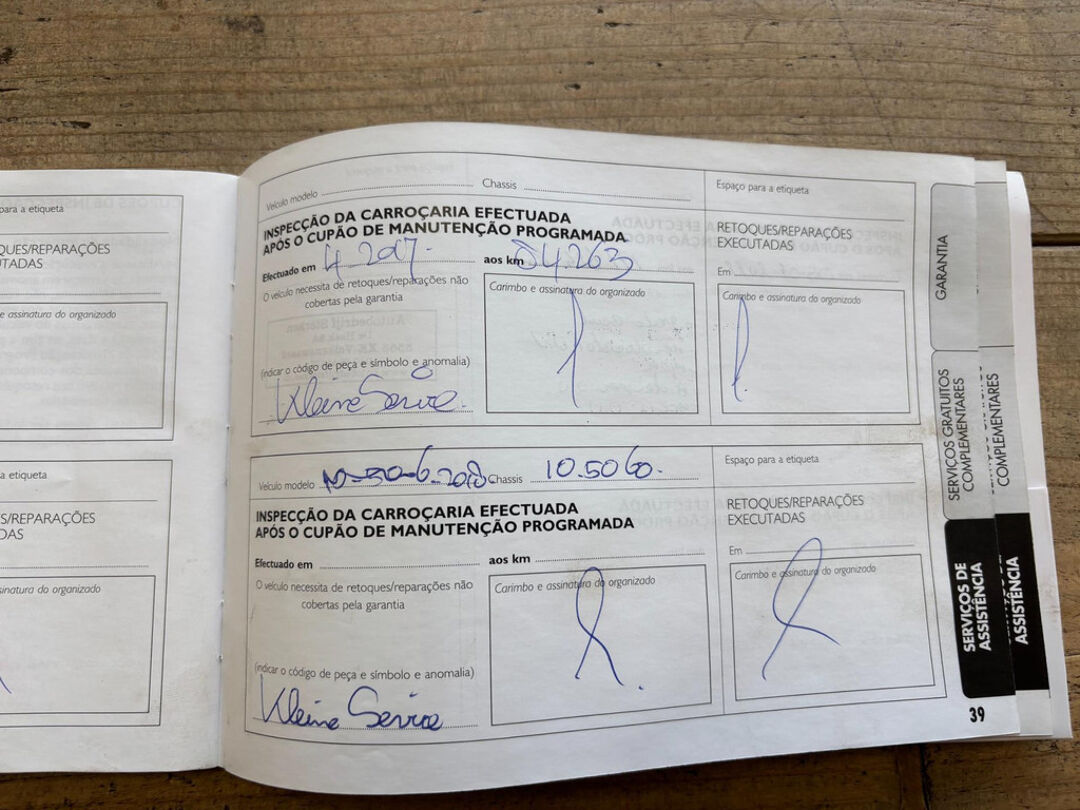 para a etiqueta
QUES/REPARAÇÕES
UTADAS
e assinatura do organizado
a etiqueta
S/REPARAÇÕES
DAS
sinatura do organizado
Veículo modelo
Chassis
Espaço para a etiqueta
INSPECÇÃO DA CARROÇARIA EFECTUADA
APÓS O CUPÃO DE MANUTENÇÃO PROGRAMADA
RETOQUES/REPARAÇÕES
EXECUTADAS
Efectuado em 4 2017. aos km 84.263
Em
O veículo necessita de retoques/reparações não
cobertas pela garantia
Carimbo e assinatura do organizado
Carimbo e assinatura do organizado
(indicar o código de peça e símbolo e anomalia)
Kleine Service.
Veículo modelo Chassis 10.5060.
Espaço para a etiqueta
INSPECÇÃO DA CARROÇARIA EFECTUADA
APÓS O CUPÃO DE MANUTENÇÃO PROGRAMADA
RETOQUES/REPARAÇÕES
EXECUTADAS
Efectuado em aos km
Em
O veículo necessita de retoques/reparações não
cobertas pela garantia
Carimbo e assinatura do organizado
Carimbo e assinatura do organizado
(indicar o código de peça e símbolo e anomalia)
Kleine Service
GARANTIA
SERVIÇOS GRATUITOS
COMPLEMENTARES
COMPLEMENTARES
SERVIÇOS DE
ASSISTÊNCIA
ASSISTÊNCIA
39